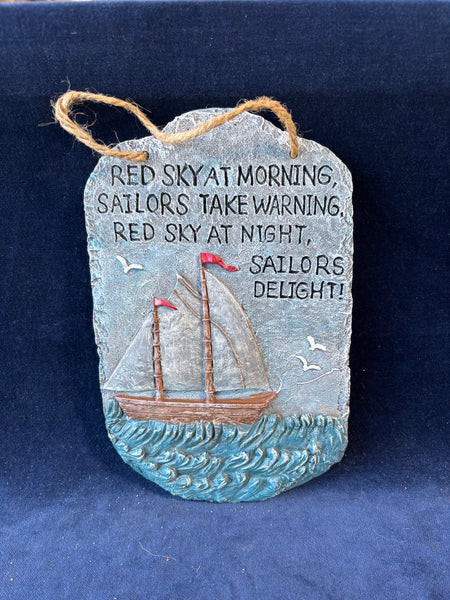 RED SKY AT MORNING,
SAILORS TAKE WARNING.
RED SKY AT NIGHT,
SAILORS
DELIGHT!